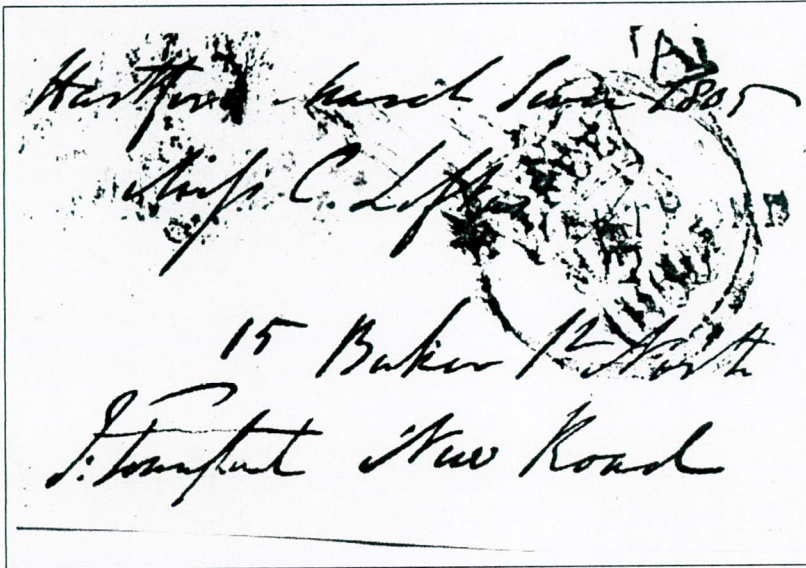 Hartford March Seven 1805
Miss C. Loftus
15 Baker St North
New Road